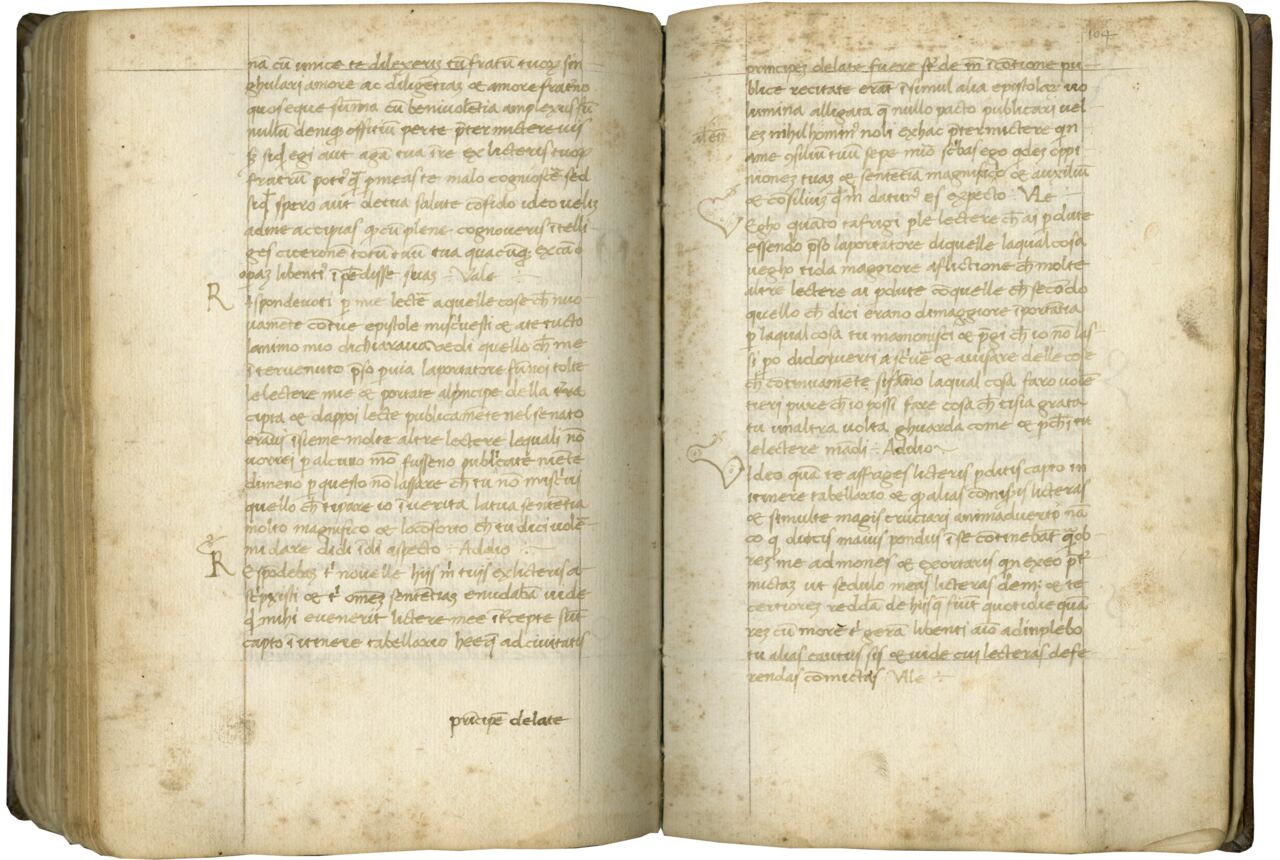 nā cū unice te dilexeris tū fratū tuoꝝ sin
ghulari amore ac diligentia & amore fratrno
quoseque sūma cū benivolētia amplexus sū
nullū deniq officiū per te ptermictere vis
egi aut agā tua ī re ex licteris tuoꝝ
fratrū potiꝰ q̄ p meas te malo cognoscē sed
spero aut de tua salute cōfido ideo velis
a me accipias cū plene cognoveris ītelli
ges ciceronē totū tuū tua quacūq
opaz libentr īpēdisse suas Vale
R
Ispondevoti p mie lecte a quelle cose ch nuo
vamēte cōtue epistole miscrivesti & ate tucto
lanimo mio dichiarava vedi quello ch me
ītervenuto pso p via laportatore fūnoi tolte
le lectere mie & portate alprīcipe della
cipta & dappoi lecte publicamēte nel senato
eravi īsieme molte altre lectere lequali nō
vorrei p alcuno mō fusseno publicate niēte
dimeno p questo nō lassare ch tu nō miscrivis
quello ch ti pare io ī verita la tua sentētia
molto magnifico & locōforto ch tu dici volē
mi dare didi ī di aspecto Addio
R
Espōdebaz novelle hijs tuis ex licteris a
& omēs sentētias enudabā vide
q mihi evenerit lictere mee ītcepte sūt
capto ī itenere tabellario heeq ad civitatis
prīcipē delate
104
principez delate fuere de ī cōtione pu
blice recitate erāt īsimul alia epistolar vo
lumina alligata q nullo pacto publicari vel
lez nihilhominꝰ noli ex hac ptermictere qn
a me ꝯsiliū tuū sepe ego
nionez tuas & sentētia magnifico & auxiliū
& cōsiliuz daturꝰ es expecto Vle
Egho quāto tafrigi p le lectere ch ai pdute
essendo pso laportatore di quelle laqual cosa
vegho tida maggiore aflictione ch molte
altre lectere ai pdute cō quelle ch secōdo
quello ch dici erano di maggiore īportātia
p laqual cosa tu mamonisci & pgi ch io nō las
si po didoverti ascrivē & avisare delle cose
ch cōtinuamēte si fāno laqual cosa faro volē
tieri pure ch io possi fare cosa ch ti sia grata
tu unaltra volta ghuarda come & pchi tu
le lectere māoli Addio
Video quā te affrages licteris pditis capto in
itinere tabellario & q alias comissis licteras
& simul te magis cruciari animadverto nā
co q ducis maius pondus ī se cōtinebāt qāob
rez me admones & exortaris qn ex eo pter
mictaz ut sedulo meas licteras dem & te
certiorez reddā de hijsq fiūt quotidie quā
rez cū more gerā libenti aīo adimplebo
tu alias cautus sis & vide cui lecteras defe
rendas comictas Vle